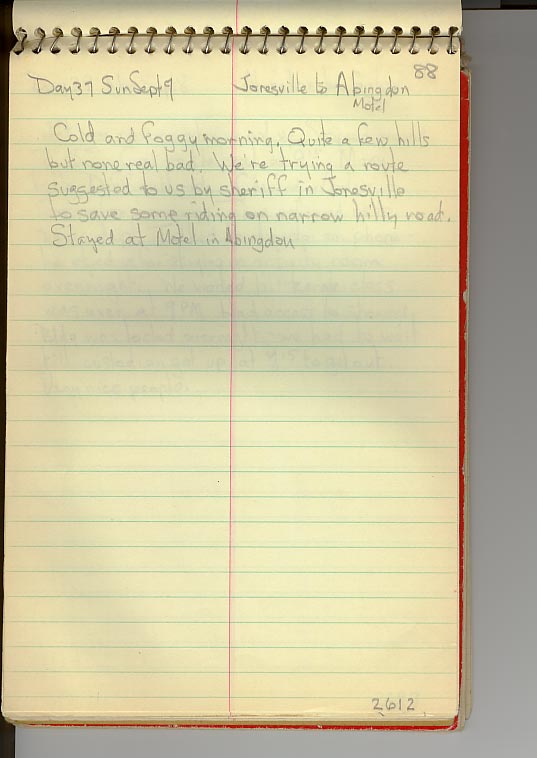 88
Day 37 Sun Sept 9 Jonesville to Abingdon
Motel
Cold and foggy morning. Quite a few hills
but none real bad. We're trying a route
suggested to us by sheriff in Jonesville
to save some riding on narrow hilly road.
Stayed at Motel in Abingdon
2612